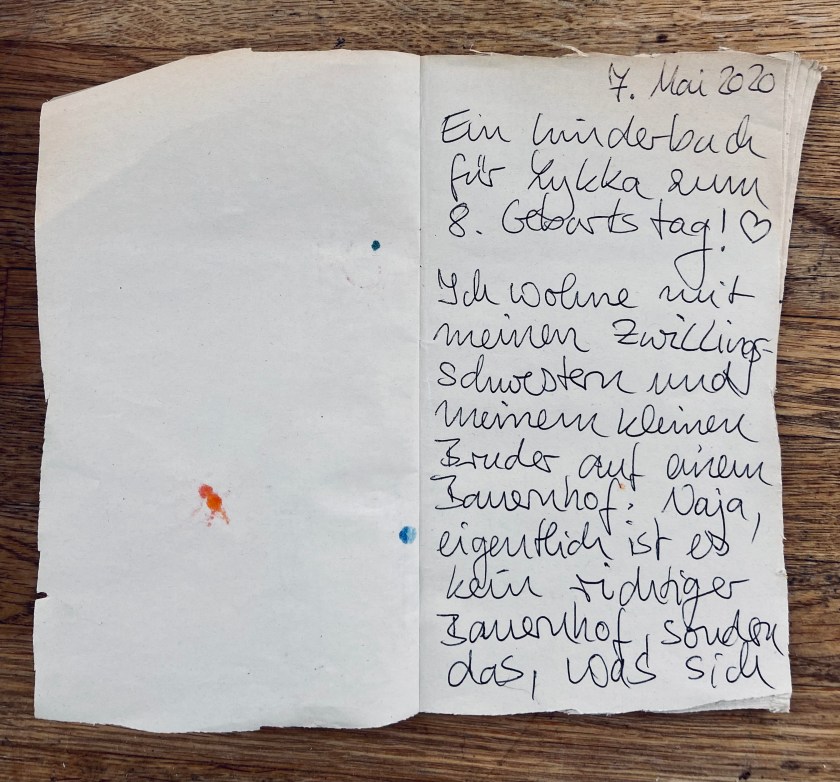 7. Mai 2020
Ein Kinderbuch
für Lykka zum
8. Geburtstag! ♡
Ich wohne mit
meinen Zwillings-
schwestern und
meinem kleinen
Bruder auf einem
Bauernhof. Naja,
eigentlich ist es
kein richtiger
Bauernhof, sondern
das, was sich